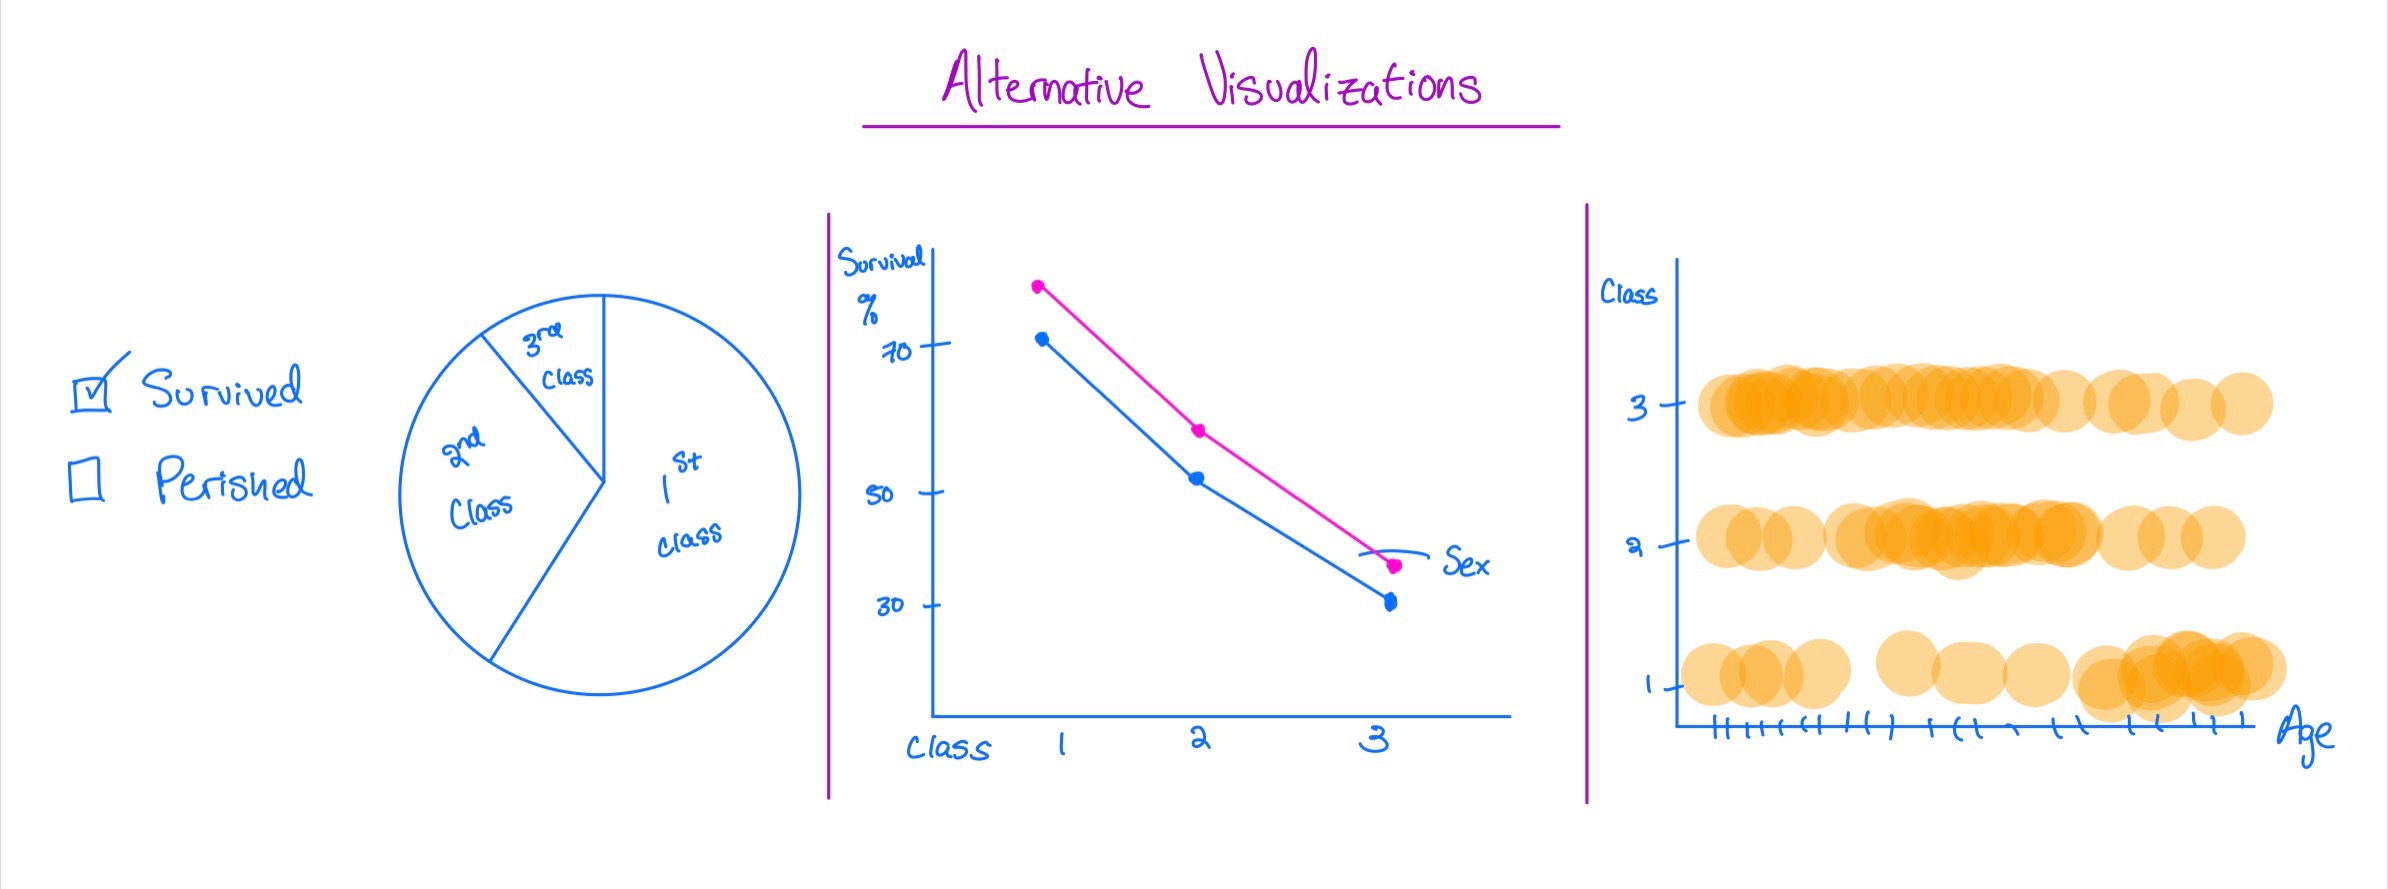 Alternative Visualizations
Survived
Perished
3rd
class
2nd
Class
1st
class
Survival
%
70
50
30
Sex
Class 1 2 3
Class
3
2
1
Age